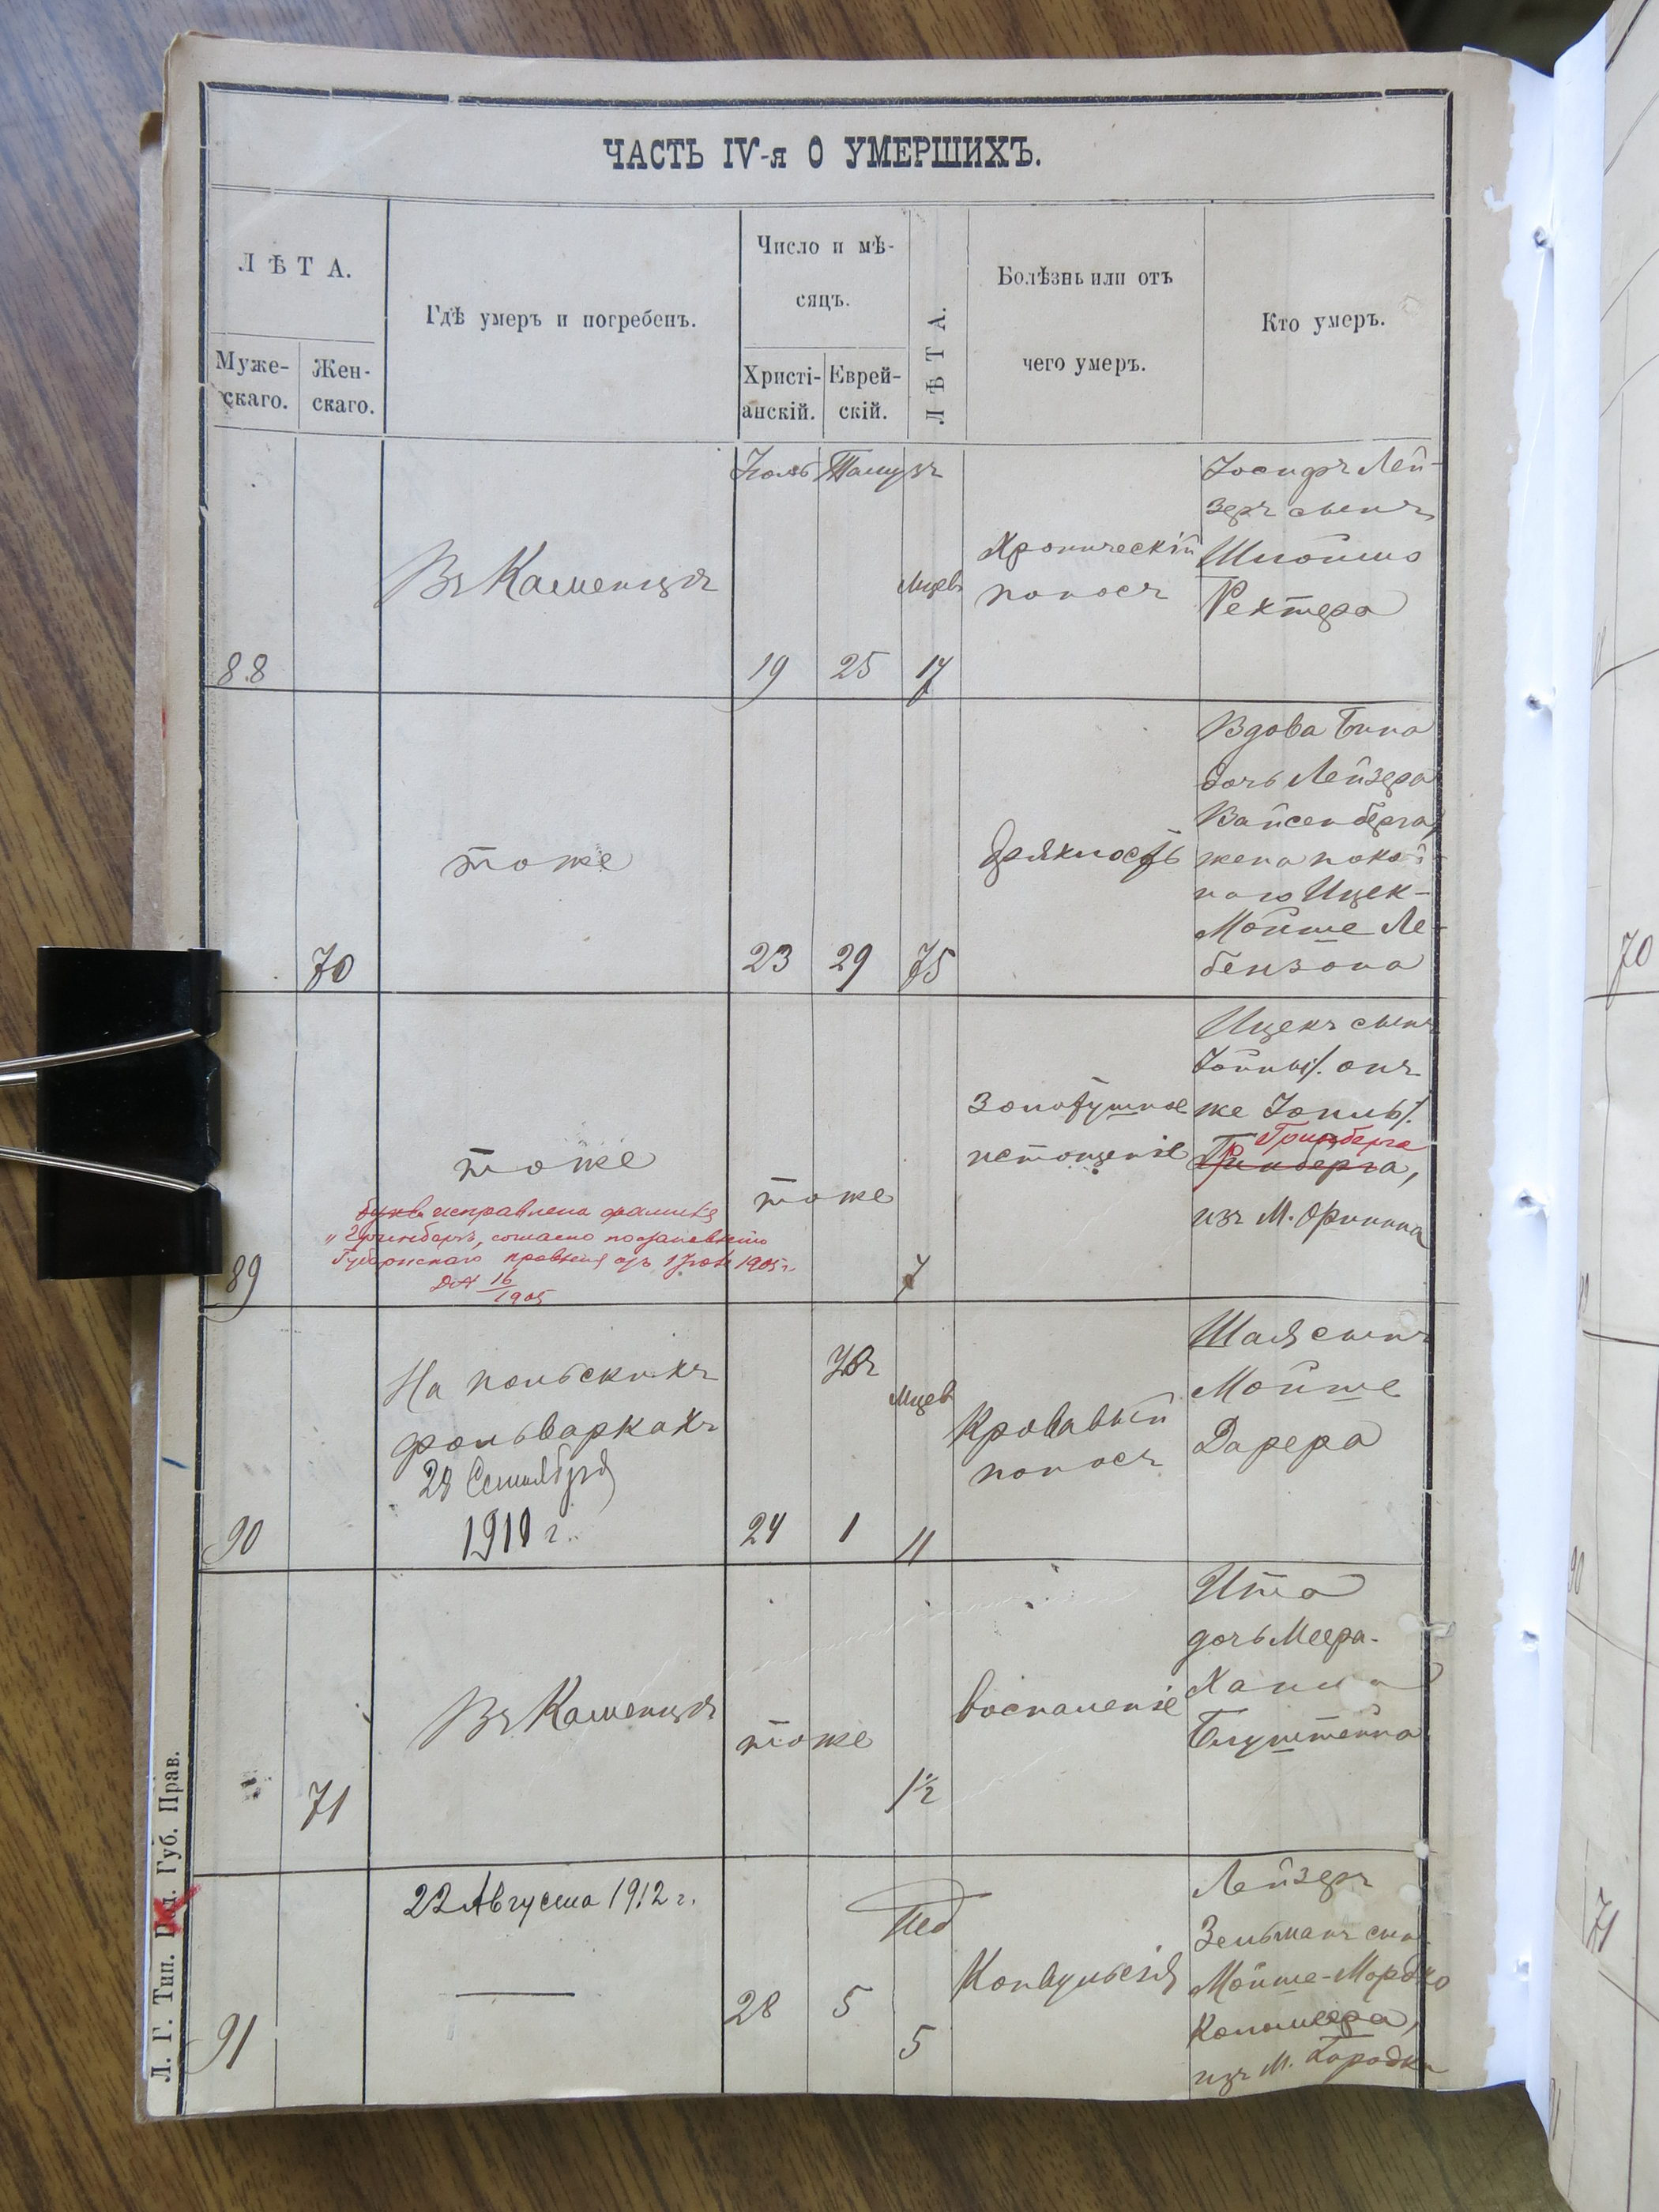 ЧАСТЬ IV-я О УМЕРШИХЪ.
ЛѢТА.
Муже-
скаго.
Жен-
скаго.
Гдѣ умеръ и погребенъ.
Число и мѣ-
сяцъ.
Христі-
анскій.
Еврей-
скій.
ЛѢТА.
Болѣзнь или отъ
чего умеръ.
Кто умеръ.
88
Въ Каменцѣ
Іюль
19
Тамузъ
25
Мцевъ
17
Хроническій
поносъ
Іосифъ Лей-
зеръ сынъ
Шлоймо
Рехтера
70
тоже
23
29
75
Дряхлость
Вдова Бина
дочь Лейзера
Вайсенберга,
жена покой-
наго Ицек-
Мойше Ле-
бензона
89
тоже
букв исправлена фамилія
"Гринбергъ, согласно постановленію
Губернскаго правленія отъ 1905 г.
16
1905
тоже
7
Золотушное
истощеніе
Ицекъ сынъ
Іойны/. онъ
же Іоины/.
Гринберга
Гинберга,
изъ М. Оринина
90
На польскихъ
фольваркахъ
28 Сентября
1910 г.
24
Убъ
1
Мцев
11
Кровавый
поносъ
Шая сынъ
Мойше
Дарера
71
Въ Каменцѣ
тоже
1½
воспаленіе
Ита
дочь Меера-
Хаима
Блуштейна
91
22 Августа 1912 г.
28
5
Нед
5
Конвульсія
Лейзеръ
Зельманъ сын
Мойше-Мордко
изъ М. Городка
Л. Г. Тип. Под. Губ. Прав.
70
90
71